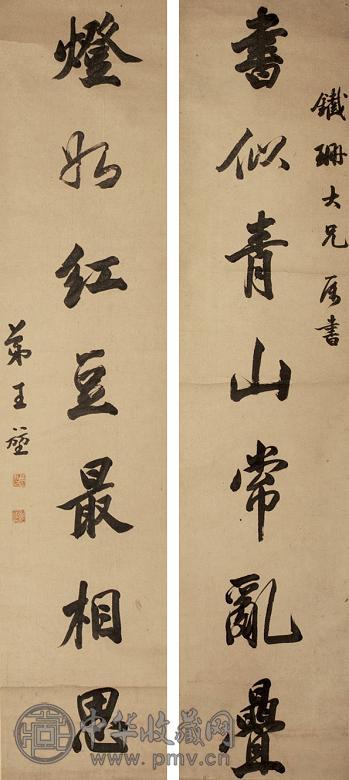 鐵珊大兄屬書
書似青山常亂疊
燈如紅豆最相思
弟王堃
中华收藏网
www.pmv.cn